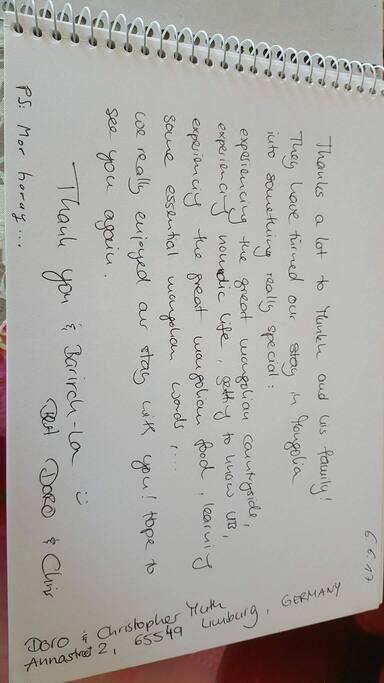 6.6.17
Thanks a lot to Munkh and his family!
They have turned our stay in Mongolia
into something really special:
experiencing the great mongolian countryside,
experiencing nomadic life, getting to know UB,
experiencing the great mongolian food, learning
some essential mongolian words, ...
We really enjoyed our stay with you! Hope to
see you again.
Thank you & Barirch-La
Best Doro & Chris
PS: Mor horay...
DORO & Christopher Muth
Annastreet 2, 65549 Limburg, GERMANY